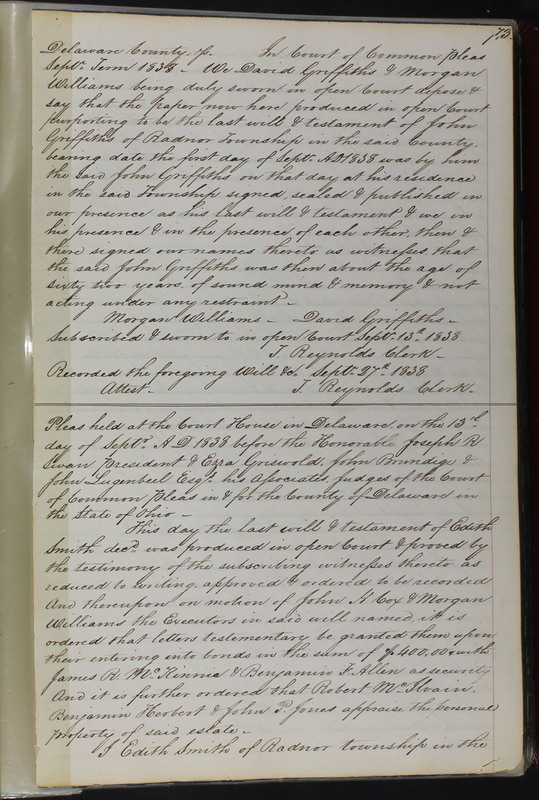 73.
Delaware County, ss. In Court of Common Pleas
Septr. Term 1838 - We David Griffiths & Morgan
Williams being duly sworn in open Court depose &
say that the paper now here produced in open Court
purporting to be the last will & testament of John
Griffiths of Radnor Township in the said County,
bearing date the first day of Septr. AD 1838 was by him
the said John Griffiths on that day at his residence
in the said Township signed, sealed & published in
our presence as his last will & testament & we in
his presence & in the presence of each other, then &
there signed our names thereto as witnesses, that
the said John Griffiths was then about the age of
sixty two years, of sound mind & memory & not
acting under any restraint -
Morgan Williams - David Griffiths -
Subscribed & sworn to in open Court Septr. 13th 1838
T. Reynolds Clerk -
Recorded the foregoing Will &c. Septr. 27th 1838
Attest - T. Reynolds Clerk -
Pleas held at the Court House in Delaware, on the 13th
day of Septr. A.D. 1838 before the Honorable Joseph R
Swan President & Ezra Griswold, John Brundige &
John Lugenbeel Esqrs. his Associates, Judges of the Court
of Common Pleas in & for the County of Delaware in
the State of Ohio -
This day the last will & testament of Edith
Smith decd. was produced in open Court & proved by
the testimony of the subscribing witnesses thereto as
reduced to writing, approved & ordered to be recorded
And thereupon on motion of John H Cox & Morgan
Williams the Executors in said will named, it is
ordered that letters testementary be granted them upon
their entering into bonds in the sum of $400,00 with
James R. McKinnie & Benjamin F. Allen as security
And it is further ordered that Robert McIlvain,
Benjamin Herbert & John P. Jones appraise the personal
property of said estate -
I Edith Smith of Radnor township in the